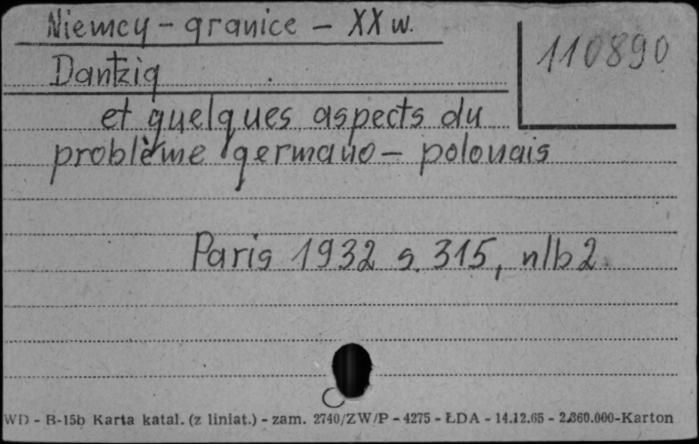 Niemcy - granice - XX w.
110890
Dantzig
et quelques aspects du
problème germano - polonais
Paris 1932 s. 315, nlb 2.
WD - B-15b Karta katal. (z liniat.) - zam. 2740/ZW/P - 4275 - ŁDA - 14.12.65 - 2.860.000-Karton